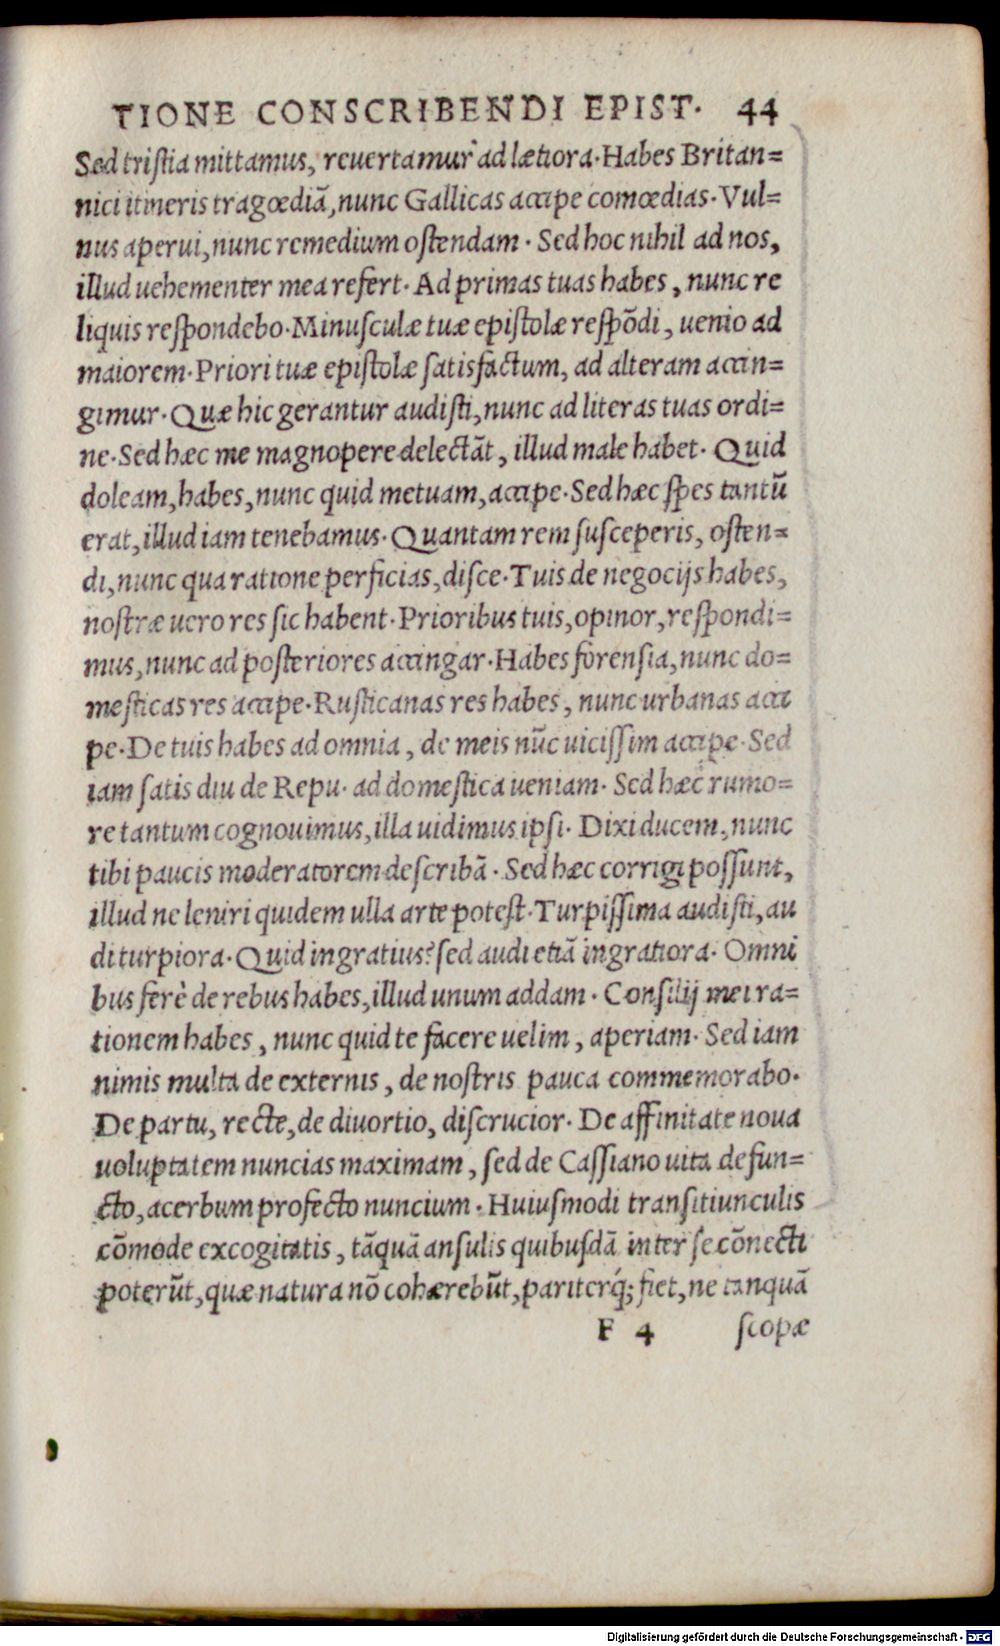 TIONE CONSCRIBENDI EPIST. 44
Sed tristia mittamus, reuertamur ad lætiora. Habes Britan=
nici itineris tragœdiã, nunc Gallicas accipe comœdias. Vul=
nus aperui, nunc remedium ostendam. Sed hoc nihil ad nos,
illud uehementer mea refert. Ad primas tuas habes, nunc re
liquis respondebo. Minusculæ tuæ epistolæ respõdi, uenio ad
maiorem. Priori tuæ epistolæ satisfactum, ad alteram accin=
gimur. Quæ hic gerantur audisti, nunc ad literas tuas ordi=
ne. Sed hæc me magnopere delectãt, illud male habet. Quid
doleam, habes, nunc quid metuam, accipe. Sed hæc spes tantũ
erat, illud iam tenebamus. Quantam rem susceperis, osten=
di, nunc qua ratione perficias, disce. Tuis de negocijs habes,
nostræ uero res sic habent. Prioribus tuis, opinor, respondi=
mus, nunc ad posteriores accingar. Habes forensia, nunc do=
mesticas res accipe. Rusticanas res habes, nunc urbanas acci
pe. De tuis habes ad omnia, de meis nũc uicissim accipe. Sed
iam satis diu de Repu. ad domestica ueniam. Sed hæc rumo=
re tantum cognouimus, illa uidimus ipsi. Dixi ducem, nunc
tibi paucis moderatorem describã. Sed hæc corrigi possunt,
illud ne leniri quidem ulla arte potest. Turpissima audisti, au
di turpiora. Quid ingratius? sed audi etiã ingratiora. Omni
bus ferè de rebus habes, illud unum addam. Consilij mei ra=
tionem habes, nunc quid te facere uelim, aperiam. Sed iam
nimis multa de externis, de nostris pauca commemorabo.
De partu, recte, de diuortio, discrucior. De affinitate noua
uoluptatem nuncias maximam, sed de Cassiano uita defun=
cto, acerbum profecto nuncium. Huiusmodi transitiunculis
cõmode excogitatis, tãquã ansulis quibusdã inter se cõnecti
poterũt, quæ natura nõ cohærebũt, pariterq́; fiet, ne tanquã
F 4 scopæ
Digitalisierung gefördert durch die Deutsche Forschungsgemeinschaft - DFG